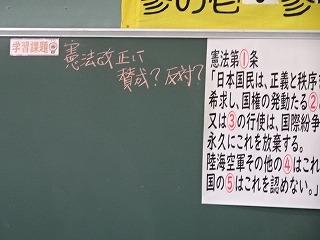 学習課題
憲法改正に
賛成？反対？
憲法第①条
「日本国民は、正義と秩序を
希求し、国権の発動たる②
又は③の行使は、国際紛争
永久にこれを放棄する。
陸海空軍その他の④はこれ
国の⑤はこれを認めない。」